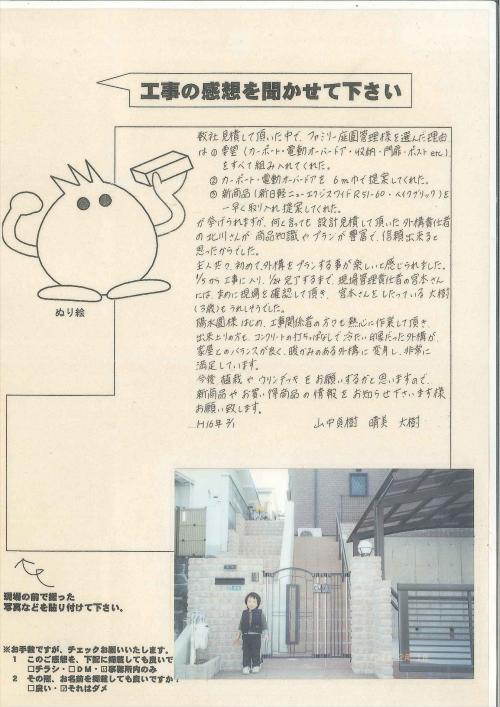 工事の感想を聞かせて下さい
数社見積して頂いた中で、ファミリー庭園管理様を選んだ理由
は ① 要望 (カーポート・電動オーバードア・収納・門扉・ポスト etc)
をすべて組み入れてくれた。
② カーポート・電動オーバードアを 6mサイズ提案してくれた。
③ 新商品 (新日軽ニューエクジスワイドRS11-60・ベイクブリック)を
一早く取り入れ提案してくれた。
が挙げられますが、何と言っても 設計見積して頂いた外構責任者
の北川さんが 商品知識やプランが豊富で、信頼出来ると
思ったからでした。
初めて、外構をプランする事が楽しいと感じられました。
から工事に入り、1/24 完了するまで、現場管理責任者の宮本さん
には、まめに現場を確認して頂き、宮本さんをしたっている 大樹
(3歳)もうれしそうでした。
陽水園様はじめ、工事関係者の方々も熱心に作業して頂き、
出来上りの方も、コンクリートの打ちっぱなしで冷たい印象だった外構が、
家屋とのバランスが良く、暖かみのある外構に変身し、非常に
満足しています。
今後 植栽やウッドデッキをお願いするかと思いますので、
新商品やお買い得商品の情報をお知らせ下さいます様
お願い致します。
H16年 2/1 山中 樹 晴美 大樹
ぬり絵
現場の前で撮った
写真などを貼り付けて下さい。
※お手数ですが、チェックお願いいたします。
1 このご感想を、下記に掲載しても良いで
□チラシ・□DM・☑事務所内のみ
2 その際、お名前を掲載しても良いですか?
□良い・☑それはダメ